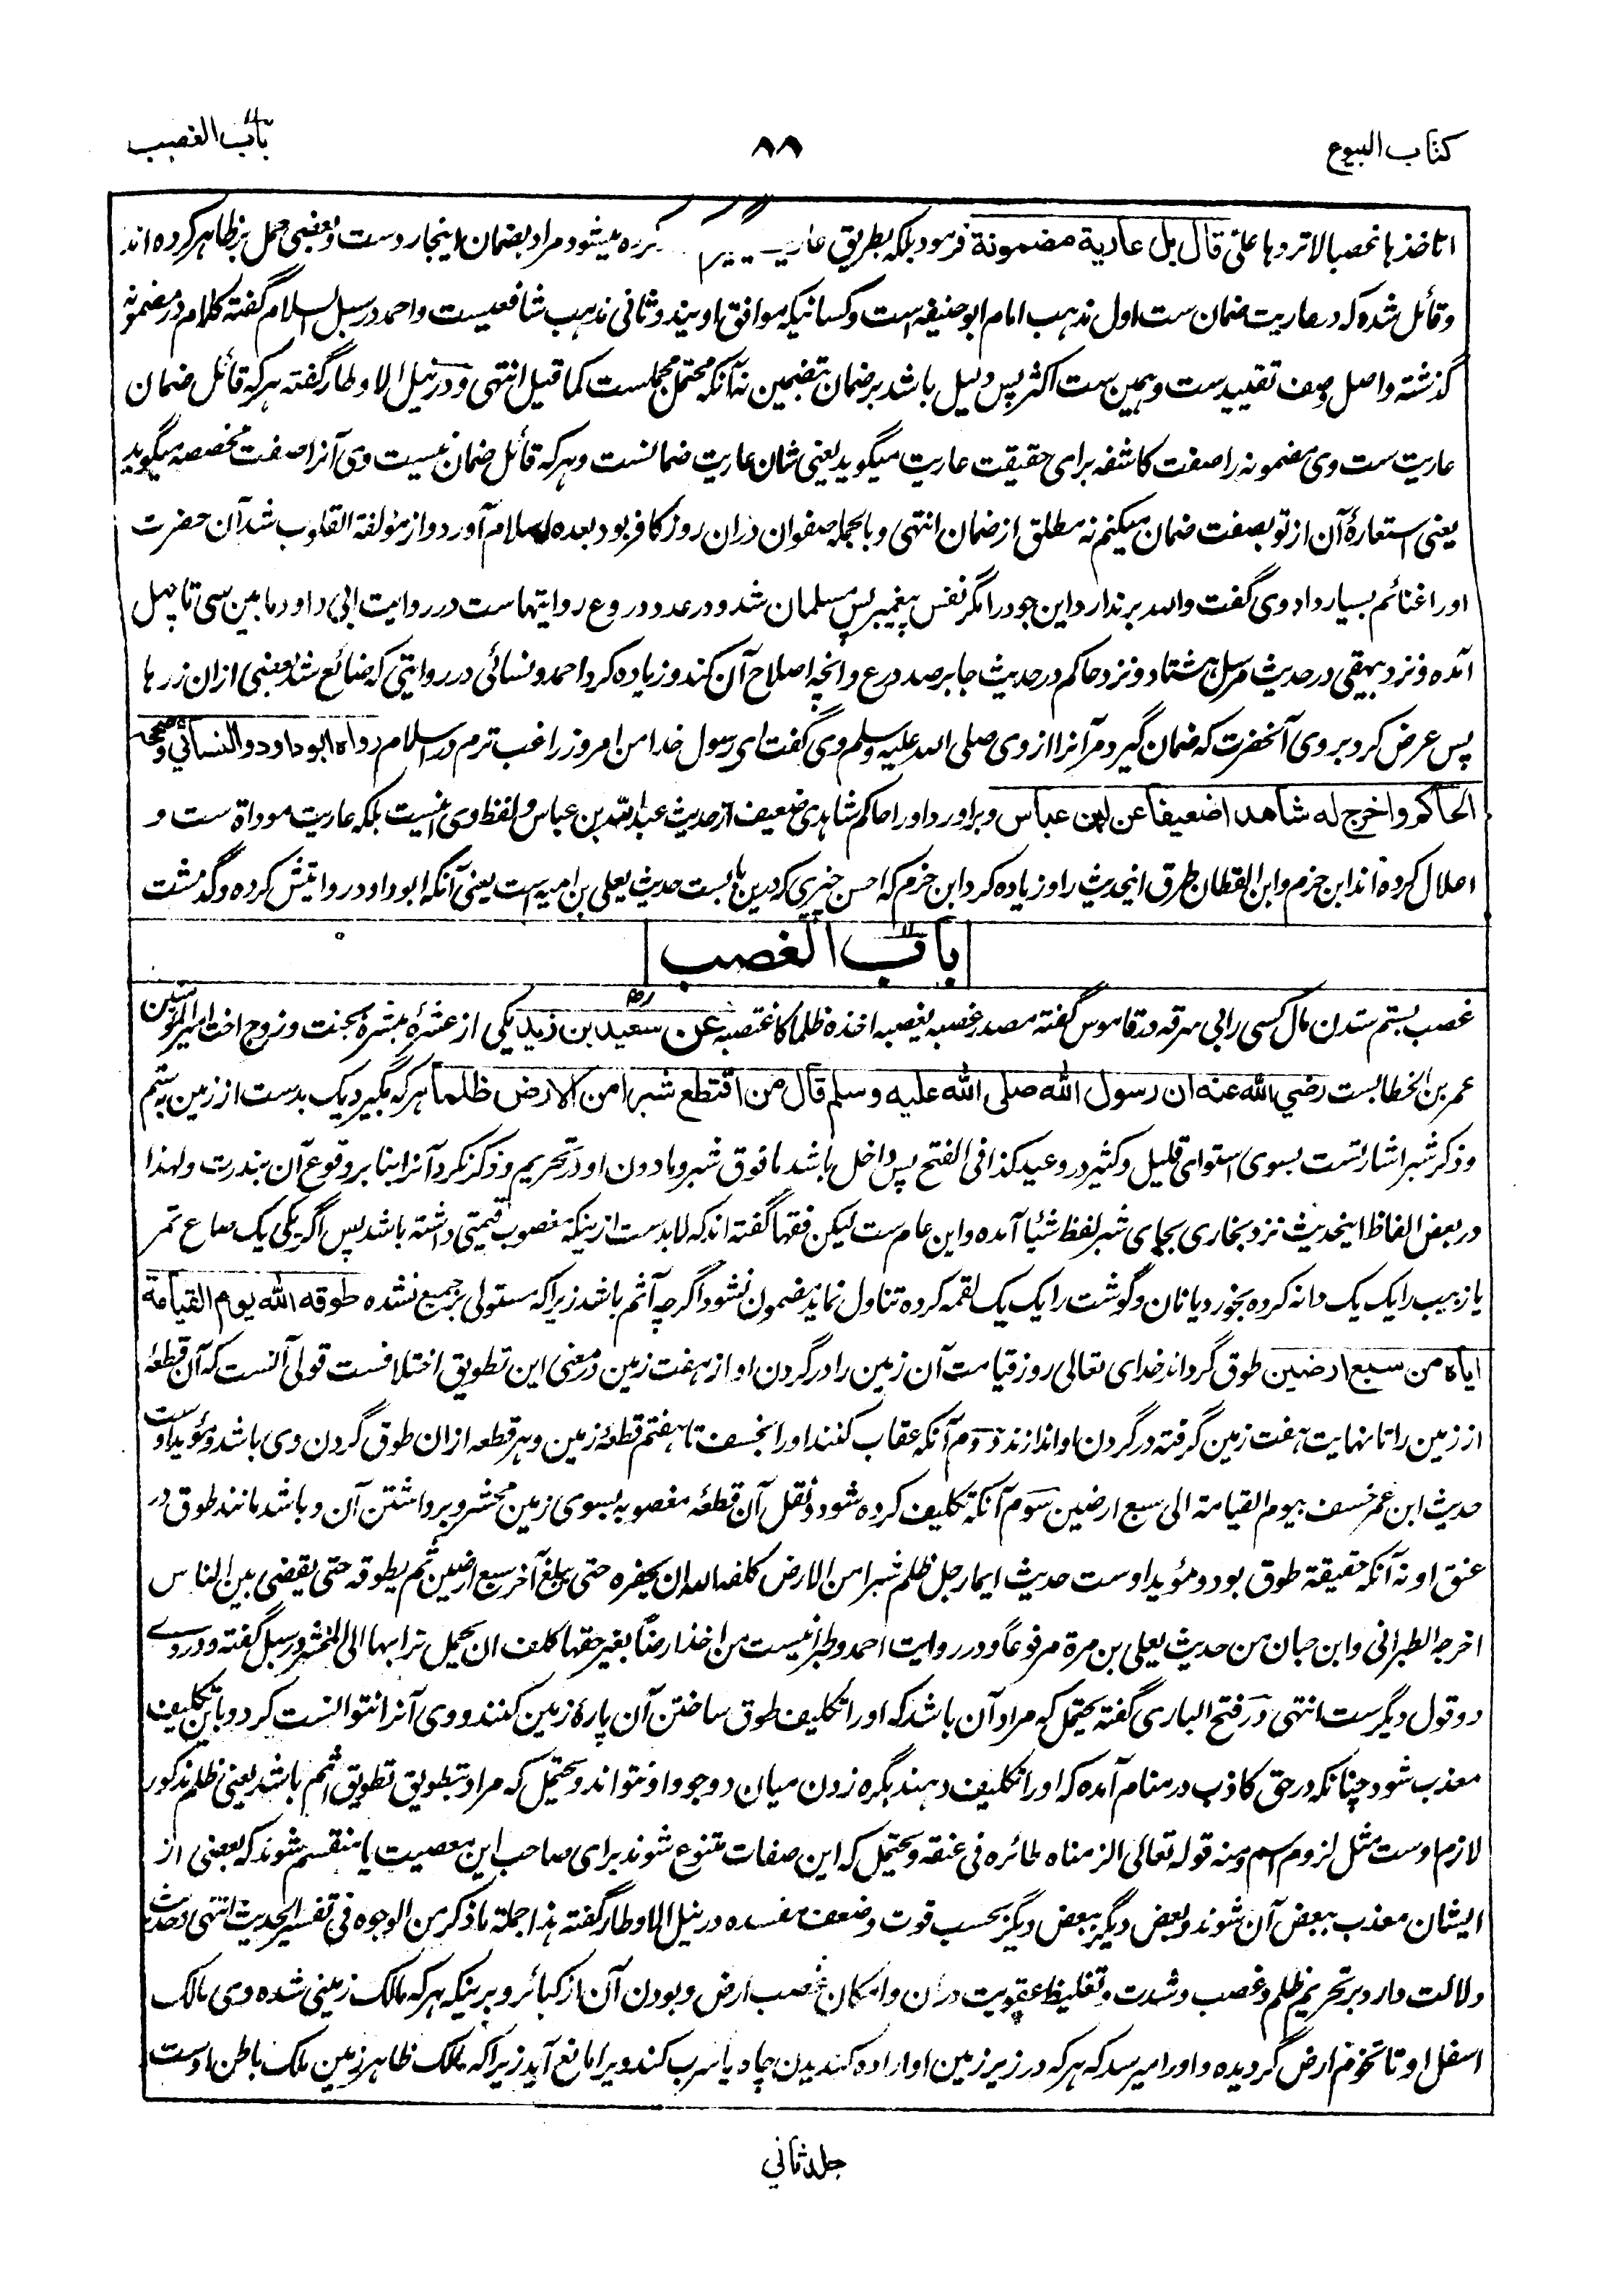 کتاب البیوع
۸۸
باب الغصب
اتاخذها غصبا لا تردها علیّ قال بل عاریة مضمونة فرمود بلکه بطریق عاریت کرده میشود مراد بضمان اینجا ردست و بعضی حمل بر ظاهر کرده اند
و قائل شده که در عاریت ضمان ست اول مذهب امام ابو حنیفه است و کسانیکه موافق اویند و ثانی مذهب شافعیست و احمد در سبل السلام گفته کلام در مضمونه
گذشته و اصل وصف تقیید ست و همین ست اکثر پس دلیل باشد بر ضمان بتضمین نه آنکه محتمل مجملست کما قیل انتهی و در نیل الاوطار گفته هر که قائل ضمان
عاریت ست وی مضمونه را صفت کاشفه برای حقیقت عاریت میگوید یعنی شان عاریت ضمانست و هر که قائل ضمان نیست وی آنرا صفت مخصصه میگوید
یعنی استعارهٔ آن از تو بصفت ضمان میکنم نه مطلق از ضمان انتهی و بالجمله صفوان دران روز کافر بود بعده اسلام آورد و از مؤلفة القلوب شد آن حضرت
او را غنائم بسیار داد وی گفت والله برندارد این جود را مگر نفس پیغمبر پس مسلمان شد و در عدد دروع روایتهاست در روایت ابی داود مابین سی تا چهل
آمده و نزد بیهقی در حدیث مرسل هشتاد و نزد حاکم در حدیث جابر صد درع و انچه اصلاح آن کند و زیاده کرد احمد و نسائی در روایتی که ضائع شد بعضی ازان زرها
پس عرض کرد بروی آنحضرت که ضمان گیرد مر آنرا از وی صلی الله علیه وسلم وی گفت ای رسول خدا من امروز راغب ترم در اسلام رواه ابو داود والنسائي وصححه
الحاکم واخرج له شاهدا ضعیفا عن ابن عباس و برآورد او را حاکم شاهدی ضعیف از حدیث عبدالله بن عباس و لفظ وی اینست بلکه عاریت موداة ست و
اعلال کرده اند ابن حزم و ابن القطان طرق اینحدیث را و زیاده کرد ابن حزم که احسن چیزی که درین بابست حدیث یعلی بن امیه است یعنی آنکه ابو داود روایتش کرده و گذشت
باب الغصب
غصب بستم ستدن مال کسی را بی سرقه در قاموس گفته مصدر غصبه یغصبه اخذه ظلما کاغتصبه عن سعید بن زید رض یکی از عشرهٔ مبشره بجنت و زوج اخت امیر المؤمنین
عمر بن الخطابست رضي الله عنه ان رسول الله صلی الله علیه وسلم قال من اقتطع شبرا من الارض ظلما هر که بگیرد یک بدست از زمین بستم
و ذکر شبر اشارتست بسوی استوای قلیل و کثیر در وعید کذا فی الفتح پس داخل باشد مافوق شبر و مادون او در تحریم و ذکر نکرد آنرا بنابر وقوع آن بندرت و لهذا
در بعض الفاظ اینحدیث نزد بخاری بجای شبر لفظ شئیا آمده و این عام ست لیکن فقها گفته اند که لابدست از ینکه مغصوب قیمتی داشته باشد پس اگر یکی یک صاع تمر
یا زبیب را یک یک دانه کرده بخورد یا نان و گوشت را یک یک لقمه کرده تناول نماید مضمون نشود اگرچه آثم باشد زیرا که مستولی بر جمیع نشده طوقه الله یوم القیامة
ایاه من سبع ارضین طوق گرداند خدای تعالی روز قیامت آن زمین را در گردن او از هفت زمین در معنی این تطویق اختلافست قولی آنست که آن قطعهٔ
از زمین را تا نهایت هفت زمین گرفته در گردن او اندازند دوم آنکه عقاب کنند او را بخسف تا هفتم قطعهٔ زمین و هر قطعه ازان طوق گردن وی باشد و مؤید اوست
حدیث ابن عمر خسف بیوم القیامة الی سبع ارضین سوم آنکه تکلیف کرده شود و نقل آن قطعهٔ مغصوبه بسوی زمین محشر و برداشتن آن و باشد مانند طوق در
عنق او نه آنکه حقیقة طوق بود و مؤید اوست حدیث ایما رجل ظلم شبرا من الارض کلفه الله ان یحفره حتی یبلغ آخر سبع ارضین ثم یطوقه حتی یقضی بین الناس
اخرجه الطبرانی وابن حبان من حدیث یعلی بن مرة مرفوعا و در روایت احمد و طبرانیست من اخذ ارضا بغیر حقها کلف ان یحمل ترابها الی المحشر در سبل گفته و در وی
دو قول دیگر ست انتهی در فتح الباری گفته یحتمل که مراد آن باشد که او را تکلیف طوق ساختن آن پارهٔ زمین کنند و وی آنرا نتوانست کرد و باین تکلیف
معذب شود چنانکه در حق کاذب در منام آمده که او را تکلیف دهند بگره زدن میان دو جو و او نتواند و یحتمل که مراد بتطویق تطویق اثم باشد یعنی ظلم مذکور
لازم اوست مثل لزوم اسم ومنه قوله تعالی الزمناه طائره فی عنقه و یحتمل که این صفات متنوع شوند برای صاحب این معصیت یا منقسم شوند که بعضی از
ایشان معذب ببعض آن شوند و بعض دیگر ببعض دیگر بحسب قوت و ضعف مفسده در نیل الاوطار گفته هذا جملة ما ذکر من الوجوه فی تفسیر الحدیث انتهی و حدیث
دلالت دارد بر تحریم ظلم و غصب و شدت و تغلیظ عقوبت دران و امکان غصب ارض و بودن آن از کبائر و برینکه هر که مالک زمینی شده وی مالک
اسفل او تا تخوم ارض گردیده و او را میرسد که هر که در زیر زمین او اراده کندیدن چاه یا سرب کند ویرا مانع آید زیرا که مالک ظاهر زمین ملک باطن اوست
جلد ثاني